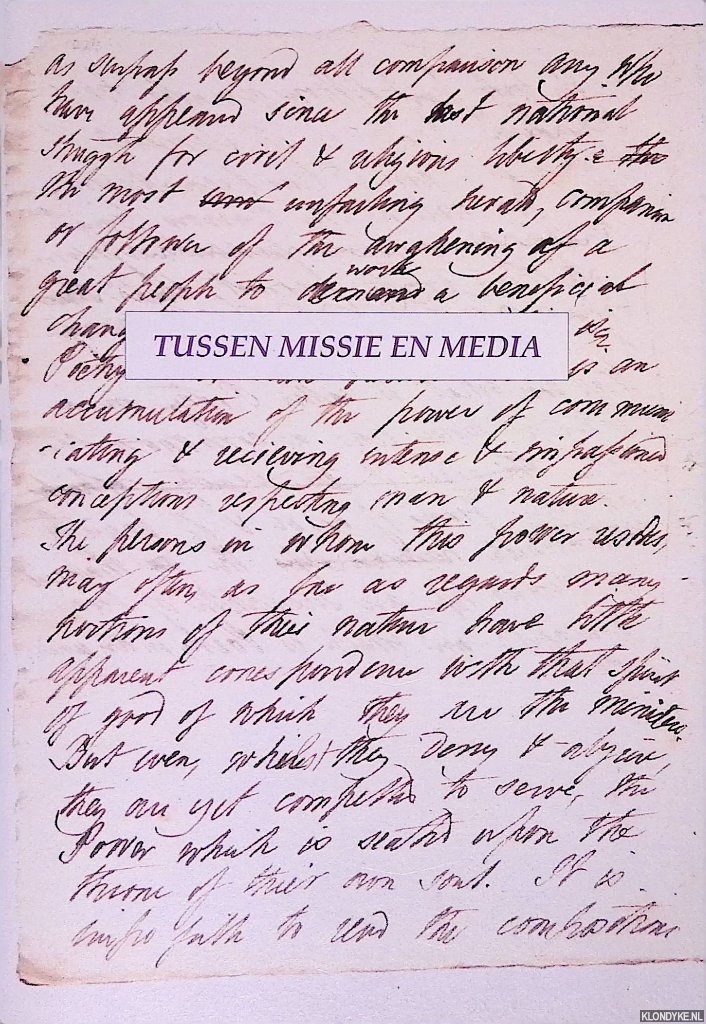 as surpass beyond all comparison any who
have appeared since the last national
struggle for civil & religious liberty. & the
the most and unfailing herald, companion
or follower of the awakening of a
great people to demand work a beneficial
chang
TUSSEN MISSIE EN MEDIA
is
Poetry is an
accumulation of the power of commun
-icating & recieving intense & impassioned
conceptions respecting man & nature.
The persons in whom this power resides,
may often, as far as regards many
portions of their nature have little
apparent correspondence with that spirit
of good of which they are the ministers.
But even, whilst they deny & abjure,
they are yet compelled to serve, the
Power which is seated upon the
throne of their own soul. It is
impossible to read the compositions
KLONDYKE.NL